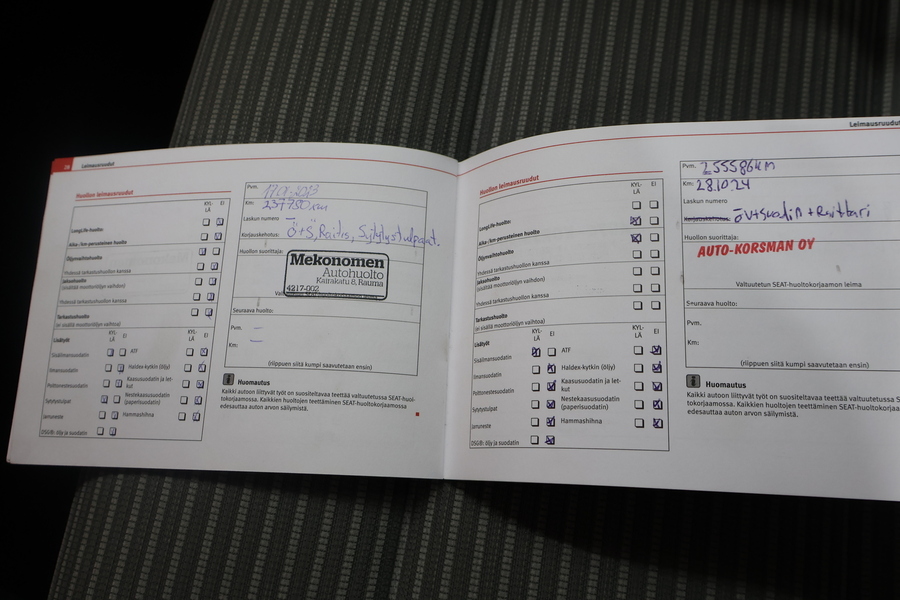 Leimausruudut
Huollon leimausruudut
KYL-
LÄ
EI
LongLife-huolto:
Aika-/km-perusteinen huolto
Öljynvaihtohuolto
Yhdessä tarkastushuollon kanssa
Jaksohuolto
(sisältää moottoriöljyn vaihdon)
Yhdessä tarkastushuollon kanssa
Tarkastushuolto
(ei sisällä moottoriöljyn vaihtoa)
Lisätyöt
KYL-
LÄ
EI
KYL-
LÄ
EI
Sisäilmansuodatin
ATF
Ilmansuodatin
Haldex-kytkin (öljy)
Polttonestesuodatin
Kaasusuodatin ja let-
kut
Sytytystulpat
Nestekaasusuodatin
(paperisuodatin)
Jarruneste
Hammashihna
DSG®: öljy ja suodatin
Pvm.
Km: 237750 km
Laskun numero –
Korjauskehotus: Ö+S, Raitis, Sytytystulpat.
Huollon suorittaja:
Mekonomen
Autohuolto
Kairakatu 8, Rauma
4217-002
Seuraava huolto:
Pvm. –
Km: –
(riippuen siitä kumpi saavutetaan ensin)
Huomautus
Kaikki autoon liittyvät työt on suositeltavaa teettää valtuutetussa SEAT-huol-
tokorjaamossa. Kaikkien huoltojen teettäminen SEAT-huoltokorjaamossa
edesauttaa auton arvon säilymistä.
Leimausruudut
Huollon leimausruudut
KYL-
LÄ
EI
LongLife-huolto:
Aika-/km-perusteinen huolto
Öljynvaihtohuolto
Yhdessä tarkastushuollon kanssa
Jaksohuolto
(sisältää moottoriöljyn vaihdon)
Yhdessä tarkastushuollon kanssa
Tarkastushuolto
(ei sisällä moottoriöljyn vaihtoa)
Lisätyöt
KYL-
LÄ
EI
KYL-
LÄ
EI
Sisäilmansuodatin
ATF
Ilmansuodatin
Haldex-kytkin (öljy)
Polttonestesuodatin
Kaasusuodatin ja let-
kut
Sytytystulpat
Nestekaasusuodatin
(paperisuodatin)
Jarruneste
Hammashihna
DSG®: öljy ja suodatin
Pvm. 255586km
Km: 28.10.24
Laskun numero
Korjauskehotus: öv+suodin + Raittari
Huollon suorittaja:
AUTO-KORSMAN OY
Valtuutetun SEAT-huoltokorjaamon leima
Seuraava huolto:
Pvm.
Km:
(riippuen siitä kumpi saavutetaan ensin)
Huomautus
Kaikki autoon liittyvät työt on suositeltavaa teettää valtuutetussa S
tokorjaamossa. Kaikkien huoltojen teettäminen SEAT-huoltokorjaa
edesauttaa auton arvon säilymistä.